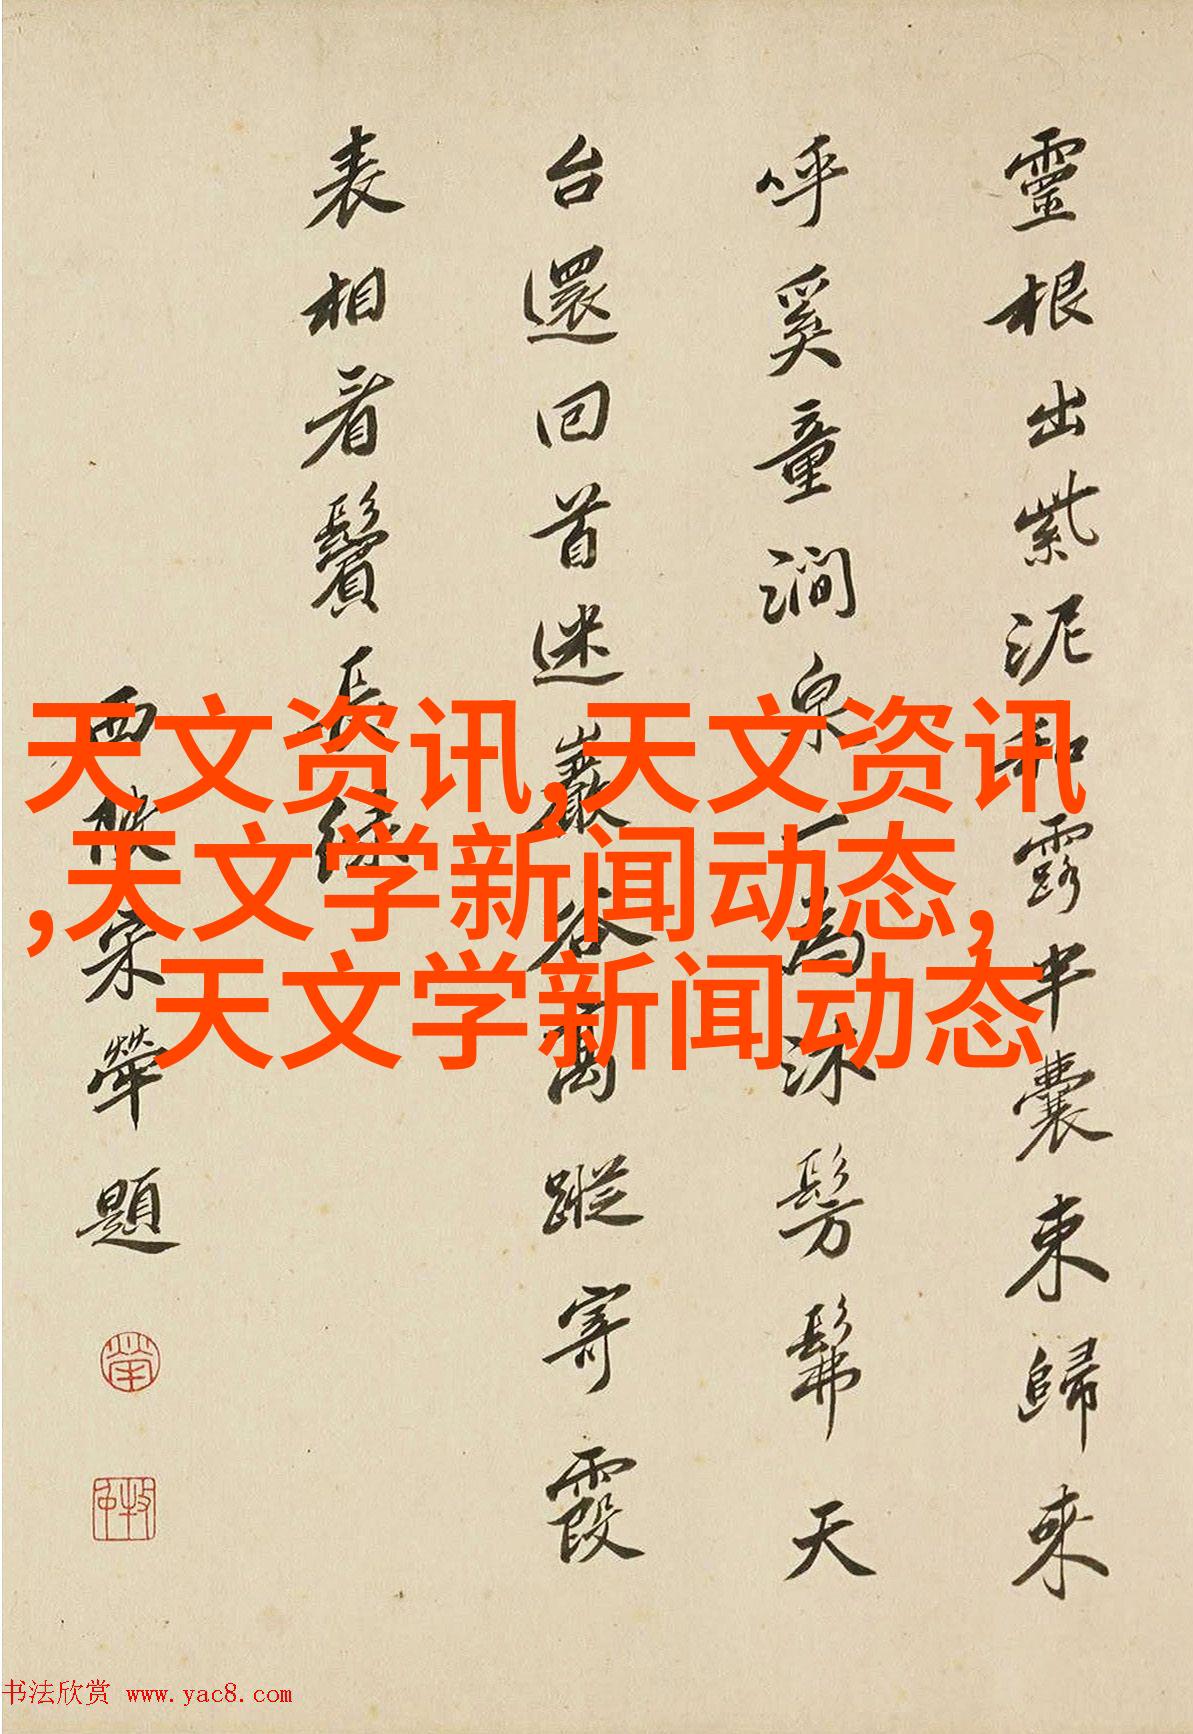 靈根出紫泥和露半囊束歸来
呼奚童澗泉一為沐髣髴天
台還回首迷巖谷高蹤寄霞
表相看鬢長绿
西陂宋犖題
天文资讯,天文资讯
,天文学新闻动态,
天文学新闻动态
书法欣赏 www.yac8.com